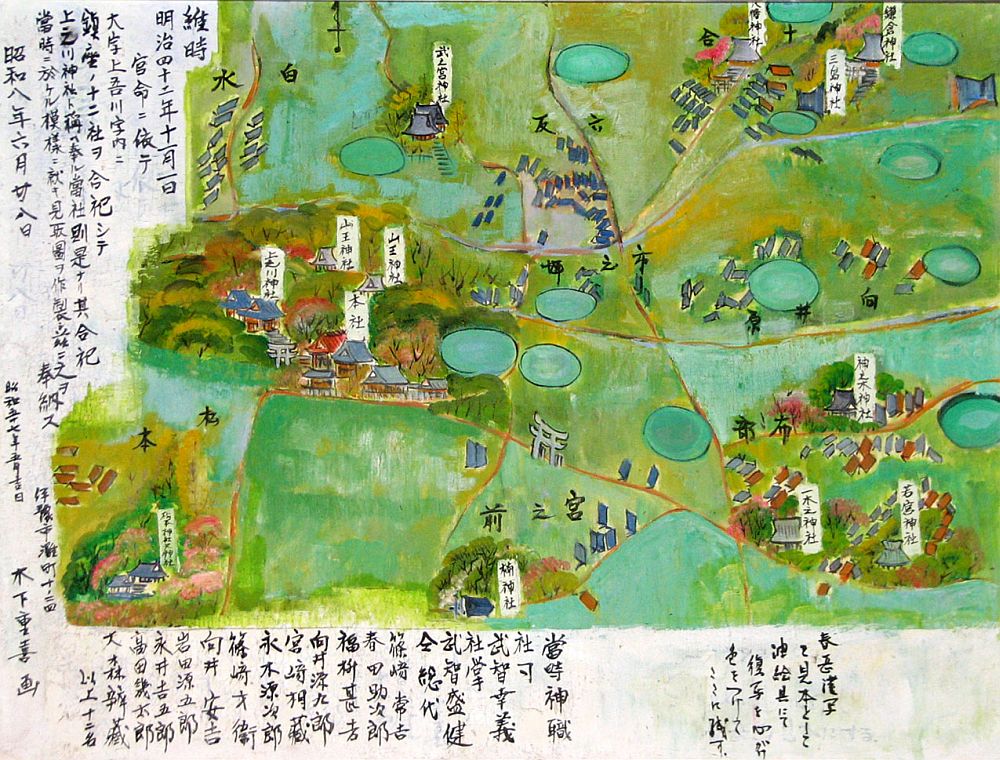 維時
明治四十二年十一月一日
官命ニ依テ
大字上吾川字内ニ
鎮座ノ十二社ヲ合祀シテ
上吾川神社ト稱ヘ奉ル當社則是ナリ其合祀
當時ニ於ケル模様ニ就キ見取圖ヲ作製シ茲ニ之ヲ奉納ス
昭和八年六月廿八日
伊豫市灘町
木下重喜画
鎌倉神社
八幡神社
三島神社
十合
武之宮神社
白水
六反
市之坪
向井原
山王神社
山王神社
上吾川神社
本社
神之木神社
布部
若宮神社
一木之神社
宮之前
楠神社
松本
當時神職
社司
武智幸義
社掌
武智盛健
仝総代
篠崎常吉
春田助次郎
福桝甚吉
向井源九郎
宮崎相藏
永木源次郎
篠崎才衛
向井安吉
岩田源五郎
永井吉五郎
高田幾太郎
大森辨藏
以上十二名
て見本として
油絵具にて
復写を
色をつけて